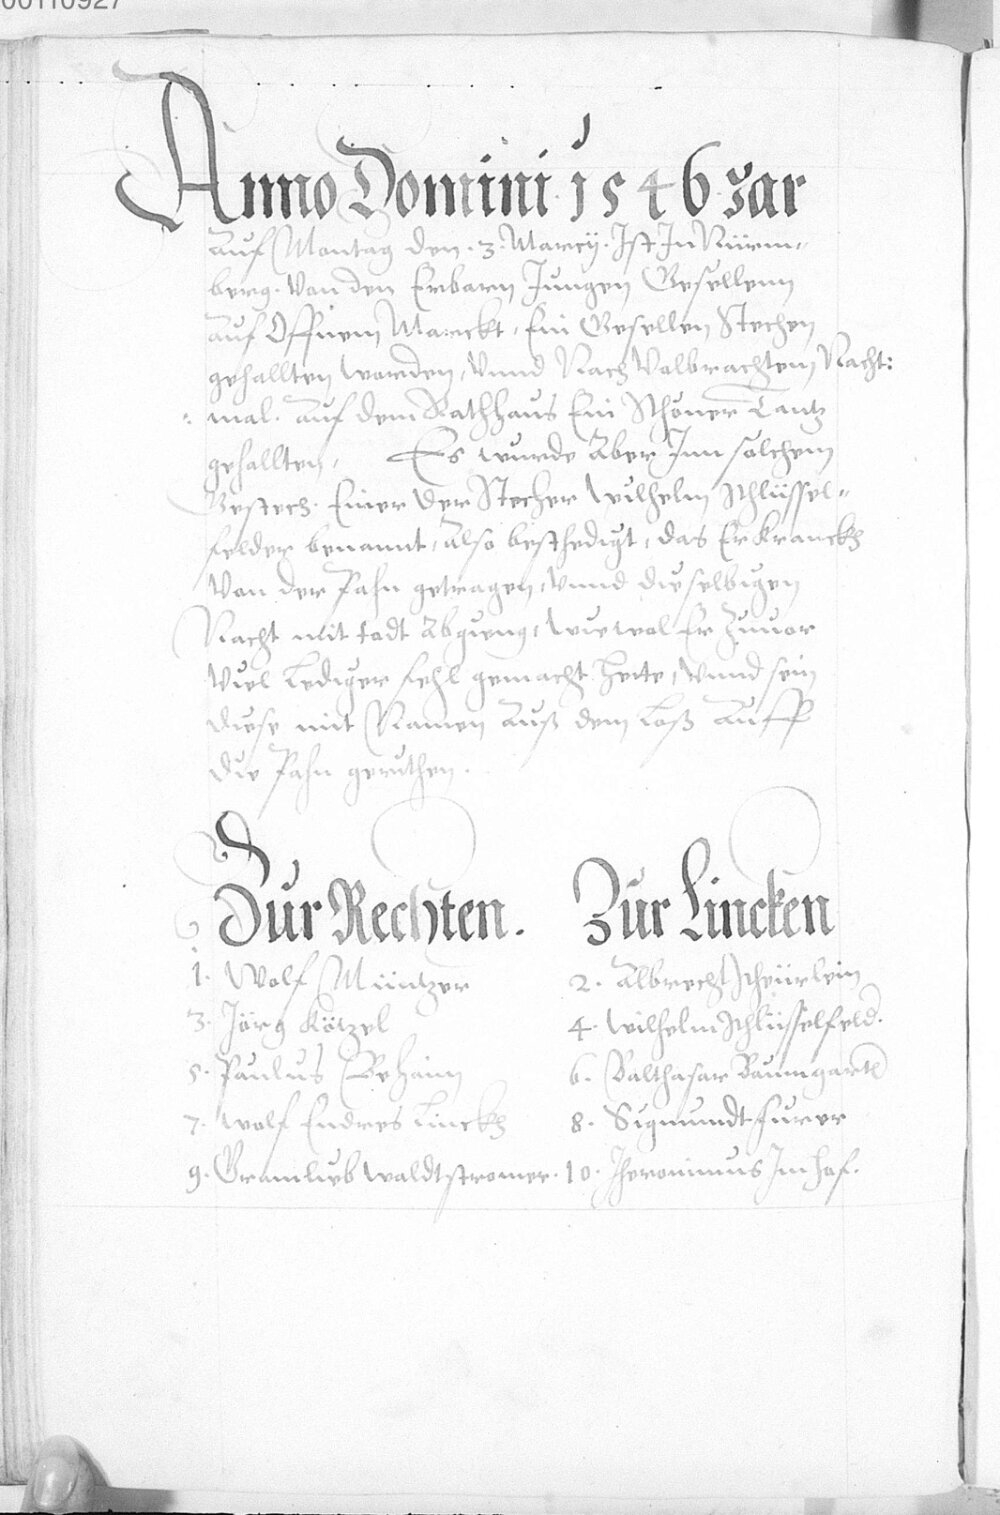 00110927
Anno Domini 1546 Jar
Auf Montag den .3. Marcÿ. Ist In Nürm-
berg. Von den Erbarn Jungen Gesellenn
Auf Offnem Marckt, Ein Gesellen Stechen
gehallten worden, Vnnd Nach Volbrachtem Nacht:
mal. auf dem Rathhaus Ein Schöner Tantz
gehallten, Es wurde Aber Inn solchem
Gestech. Einer der Stecher Wilhelm Schlüssel-
felder benannt, Also beschedigt, das Er Kranckh
Von der Pahn getragen, Vnnd die selbigen
Nacht mit todt Abgieng, Wiewol Er Zuuor
Viel Lediger fehl gemacht hette, Vnnd sein
diese mit Namen Auß dem Loß Auff
die Pahn gerithen.
Zur Rechten. Zur Lincken
1. Wolf Müntzer 2. Albrecht Scheürlein
3. Jörg Kötzel 4. Wilhelm Schlüsselfeld.
5. Paulus Behaim 6. Balthasar Baumgartl
7. Wolf Endres Linckh 8. Sigmundt Furer
9. Gramlieb Waldtstromer. 10. Jheronimus Im hof.